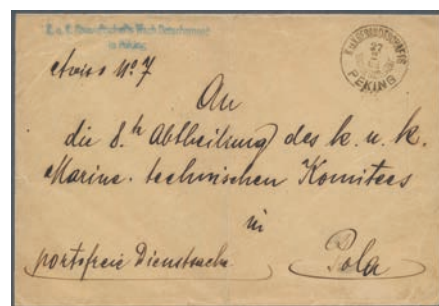 K. u. K. Gesandtschafts Wach Detachement
in Peking
Aviso No 7
PEKING
27
An
die 8.te Abtheilung des k. u. k.
Marine-technischen Komitees
in
portofreie Dienstsache
Pola